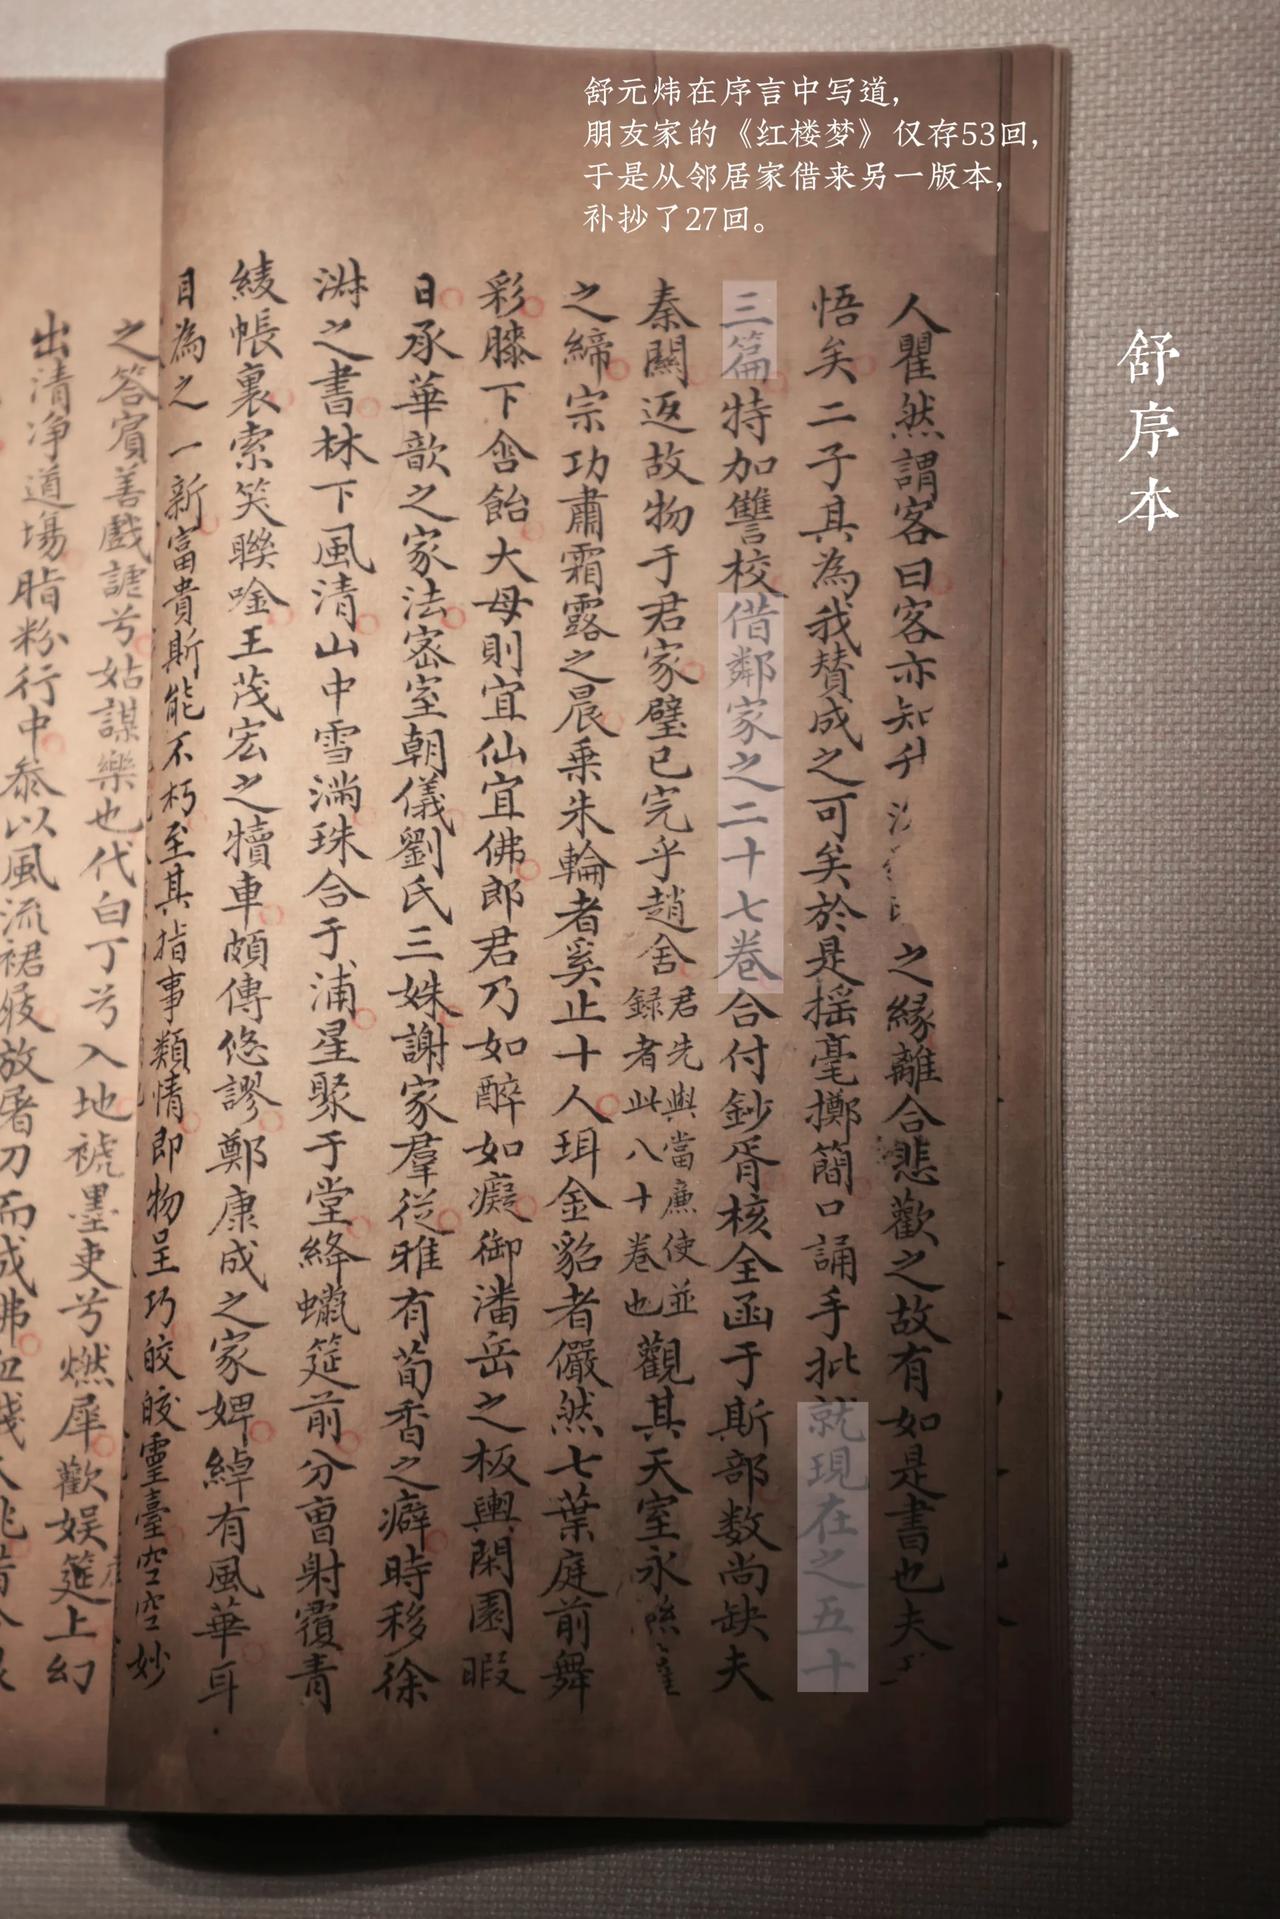 舒元炜在序言中写道，
朋友家的《红楼梦》仅存53回，
于是从邻居家借来另一版本，
补抄了27回。
舒序本
人瞿然謂客曰客亦知升之緣離合悲歡之故有如是書也夫
悟矣二子其為我賛成之可矣於是搖毫擲簡口誦手批就現在之五十
三篇特加讐校借鄰家之二十七卷合付鈔胥核全函于斯部数尚缺夫
秦關返故物于君家璧已完乎趙舍君先與當廉使並録者此八十卷也觀其天室永
之締宗功肅霜露之晨乗朱輪者奚止十人珥金貂者儼然七葉庭前舞
彩膝下含飴大母則宜仙宜佛郎君乃如醉如癡御潘岳之板輿閑園暇
日承華歆之家法密室朝儀劉氏三姝謝家羣從雅有荀香之癖時移徐
淋之書林下風清山中雪滿珠合于浦星聚于堂絳蠟筵前分曹射覆青
綾帳裏索笑聯唫王茂宏之犢車頗傳悠謬鄭康成之家婢綽有風華耳
目為之一新富貴斯能不朽至其指事類情即物呈巧皎皎靈臺空空妙
之答賓善戲謔兮姑謀樂也代白丁兮入地褫墨吏兮燃犀歡娱筵上幻
出清净道塲脂粉行中叅以風流裙屐放屠刀而成佛